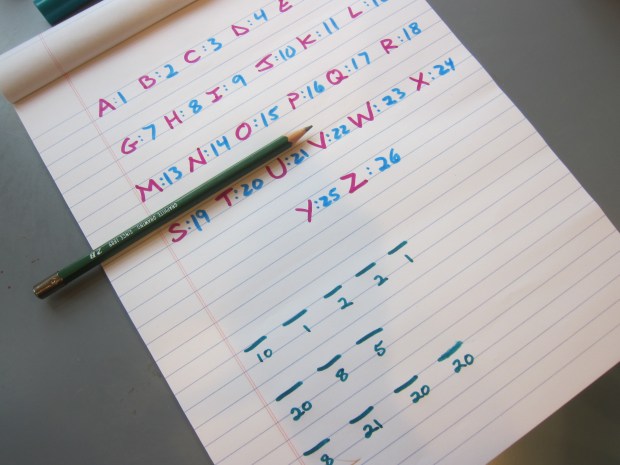 A:1 B:2 C:3 D:4 E
G:7 H:8 I:9 J:10 K:11 L:
M:13 N:14 O:15 P:16 Q:17 R:18
S:19 T:20 U:21 V:22 W:23 X:24
Y:25 Z:26
10 1 2 2 1
20 8 5
8 21 20 20
2B